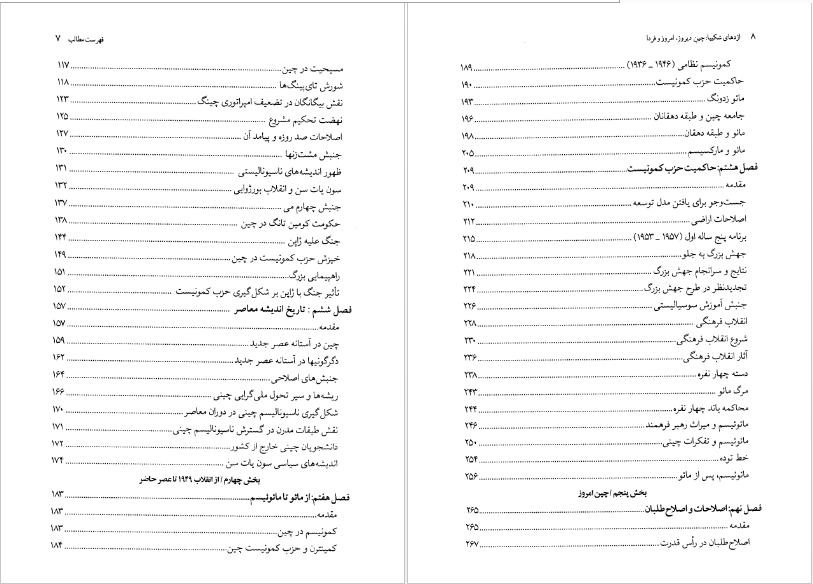 فهرست مطالب ۷
مسیحیت در چین ۱۱۷
شورش تای‌پینگ‌ها ۱۱۸
نقش بیگانگان در تضعیف امپراتوری چینگ ۱۲۳
نهضت تحکیم مشروع ۱۲۵
اصلاحات صد روزه و پیامد آن ۱۲۷
جنبش مشت‌زنها ۱۳۰
ظهور اندیشه‌های ناسیونالیستی ۱۳۱
سون یات سن و انقلاب بورژوایی ۱۳۲
جنبش چهارم می ۱۳۷
حکومت کومین تانگ در چین ۱۳۸
جنگ علیه ژاپن ۱۴۴
خیزش حزب کمونیست در چین ۱۴۹
راهپیمایی بزرگ ۱۵۱
تأثیر جنگ با ژاپن بر شکل‌گیری حزب کمونیست ۱۵۲
فصل ششم : تاریخ اندیشه معاصر ۱۵۷
مقدمه ۱۵۷
چین در آستانه عصر جدید ۱۵۹
دگرگونیها در آستانه عصر جدید ۱۶۲
جنبش‌های اصلاحی ۱۶۴
ریشه‌ها و سیر تحول ملی‌گرایی چینی ۱۶۶
شکل‌گیری ناسیونالیسم چینی در دوران معاصر ۱۷۰
نقش طبقات مدرن در گسترش ناسیونالیسم چینی ۱۷۱
دانشجویان چینی خارج از کشور ۱۷۲
اندیشه‌های سیاسی سون یات سن ۱۷۴
بخش چهارم / از انقلاب ۱۹۴۹ تا عصر حاضر
فصل هفتم: از مائو تا مائوئیسم ۱۸۳
مقدمه ۱۸۳
کمونیسم در چین ۱۸۳
کمینترن و حزب کمونیست چین ۱۸۴
۸ اژدهای شکیبا: چین دیروز، امروز و فردا
کمونیسم نظامی (۱۹۴۶ ـ ۱۹۳۶) ۱۸۹
حاکمیت حزب کمونیست ۱۹۰
مائو زدونگ ۱۹۳
جامعه چین و طبقه دهقانان ۱۹۶
مائو و طبقه دهقان ۱۹۸
مائو و مارکسیسم ۲۰۵
فصل هشتم: حاکمیت حزب کمونیست ۲۰۹
مقدمه ۲۰۹
جست‌وجو برای یافتن مدل توسعه ۲۱۰
اصلاحات اراضی ۲۱۲
برنامه پنج ساله اول (۱۹۵۷ ـ ۱۹۵۳) ۲۱۵
جهش بزرگ به جلو ۲۱۸
نتایج و سرانجام جهش بزرگ ۲۲۱
تجدیدنظر در طرح جهش بزرگ ۲۲۴
جنبش آموزش سوسیالیستی ۲۲۶
انقلاب فرهنگی ۲۲۸
شروع انقلاب فرهنگی ۲۳۰
آثار انقلاب فرهنگی ۲۳۶
دسته چهار نفره ۲۳۸
مرگ مائو ۲۴۳
محاکمه باند چهار نفره ۲۴۴
مائوئیسم و میراث رهبر فرهمند ۲۴۶
مائوئیسم و تفکرات چینی ۲۵۰
خط توده ۲۵۴
مائوئیسم، پس از مائو ۲۵۶
بخش پنجم / چین امروز
فصل نهم: اصلاحات و اصلاح‌طلبان ۲۶۵
مقدمه ۲۶۵
اصلاح‌طلبان در رأس قدرت ۲۶۷